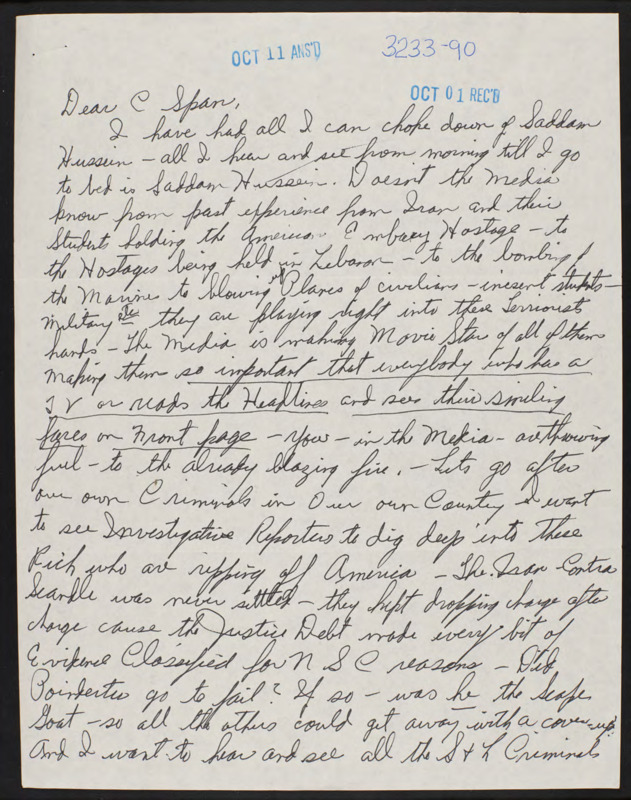 OCT 11 ANS'D
3233-90
OCT 01 REC'D
Dear C Span,
I have had all I can choke down of Saddam
Hussein - all I hear and see from morning till I go
to bed is Saddam Hussein. Doesn't the Media
know from past experience from Iran and their
Students holding the American Embassy Hostage - to
the Hostages being held in Lebanon - to the bombing of
the Marines to blowing up Planes of civilians - inosent students -
military etc they are playing right into these Terriorists
hands - The Media is making Movie Stars of all of them
Making them so important that everybody who has a
TV or reads the Headlines and sees their smiling
faces on Front page - your - in the Media - are throwing
fuel - to the already blazing fire. - Lets go after
our own Criminals in Our own Country - I want
to see Investigative Reporters to dig deep into these
Rich who are ripping off America - The Iran Contra
Scandle was never settled - they kept dropping charge after
charge cause the Justice Debt made every bit of
Evidence Classified for N S C reasons - Did
Poindexter go to jail? If so - was he the Scape
Goat - so all the others could get away with a cover-up?
And I want to hear and see all the S & L Criminals